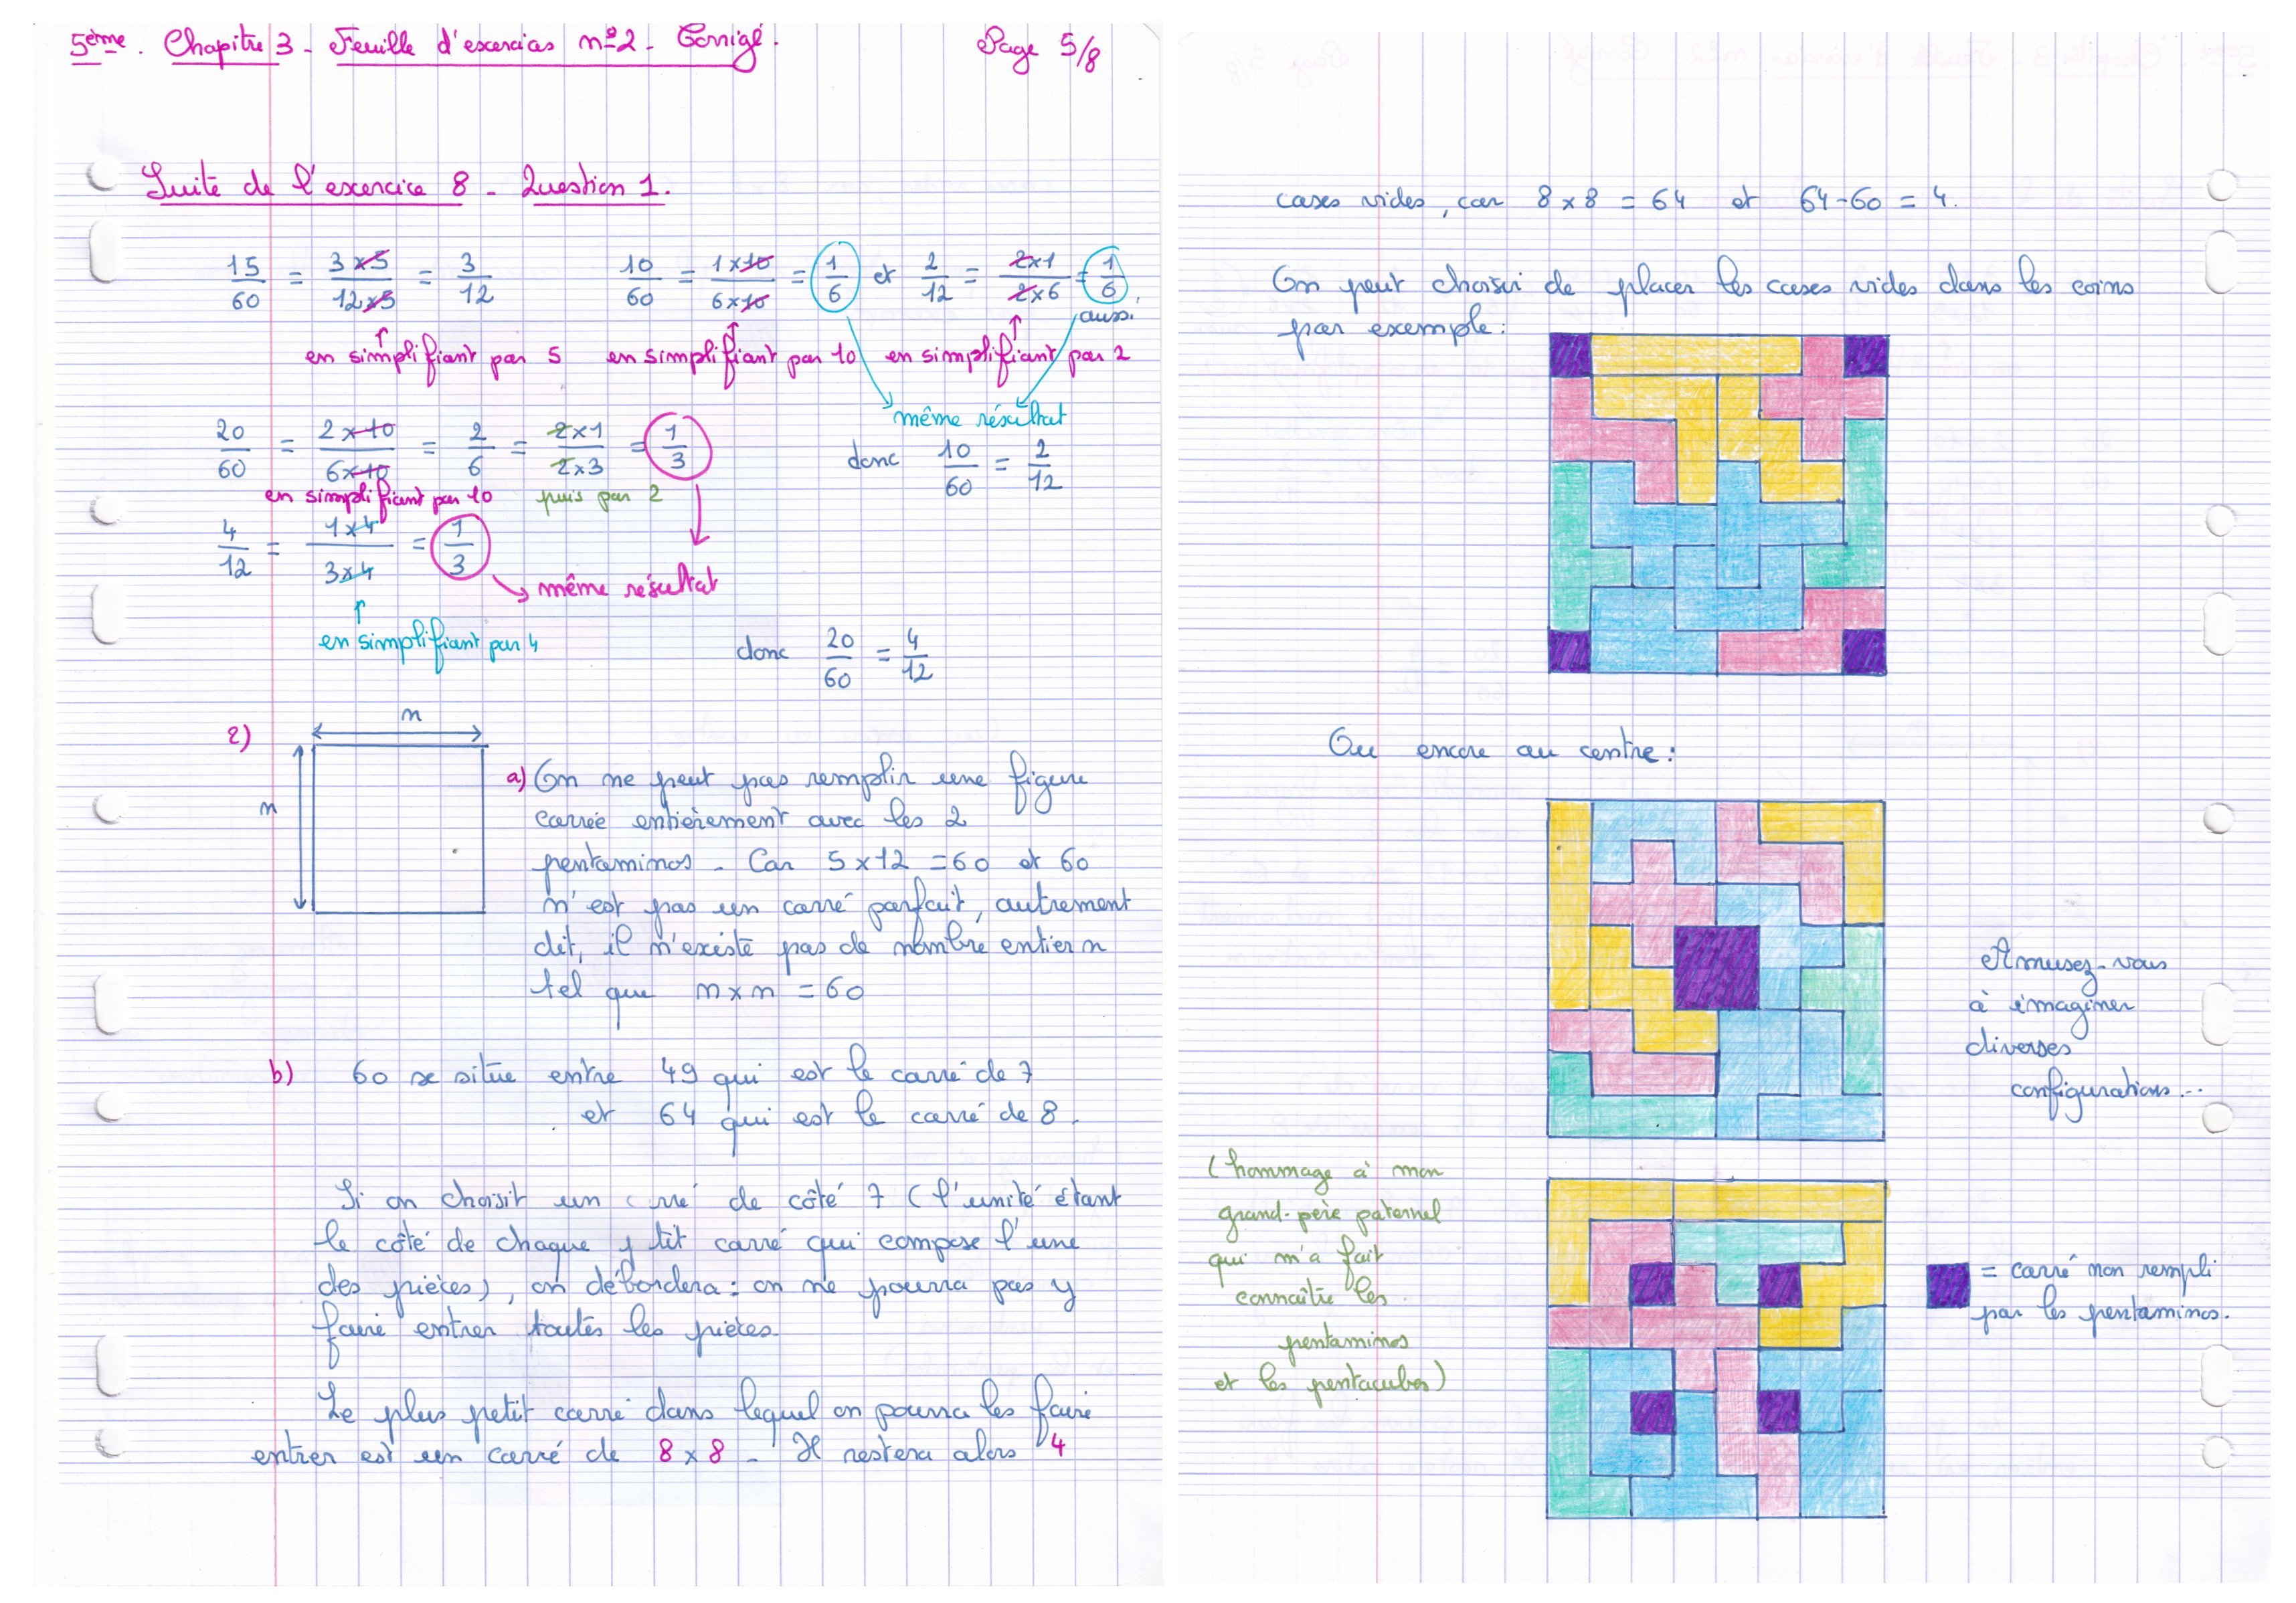 5ème. Chapitre 3 - Feuille d'exercices n°2 - Corrigé.
Page 5/8
Suite de l'exercice 8 - Question 1.
15/60 = 3×5/12×5 = 3/12
10/60 = 1×10/6×10 = 1/6 et 2/12 = 2×1/2×6 = 1/6 aussi.
en simplifiant par 5 en simplifiant par 10 en simplifiant par 2
même résultat
donc 10/60 = 2/12
20/60 = 2×10/6×10 = 2/6 = 2×1/2×3 = 1/3
en simplifiant par 10 puis par 2
4/12 = 1×4/3×4 = 1/3
même résultat
en simplifiant par 4
donc 20/60 = 4/12
2)
n
n
a) On ne peut pas remplir une figure
carrée entièrement avec les 2
pentaminos - Car 5 × 12 = 60 et 60
n'est pas un carré parfait, autrement
dit, il n'existe pas de nombre entier n
tel que n × n = 60
b) 60 se situe entre 49 qui est le carré de 7
et 64 qui est le carré de 8.
Si on choisit un carré de côté 7 (l'unité étant
le côté de chaque petit carré qui compose l'une
des pièces), on débordera : on ne pourra pas y
faire entrer toutes les pièces.
Le plus petit carré dans lequel on pourra les faire
entrer est un carré de 8 × 8 - Il restera alors 4
cases vides, car 8 × 8 = 64 et 64 - 60 = 4.
On peut choisir de placer les cases vides dans les coins
par exemple :
Ou encore au centre :
Amusez-vous
à imaginer
diverses
configurations...
(hommage à mon
grand-père paternel
qui m'a fait
connaître les
pentaminos
et les pentacubes)
= carré non rempli
par les pentaminos.